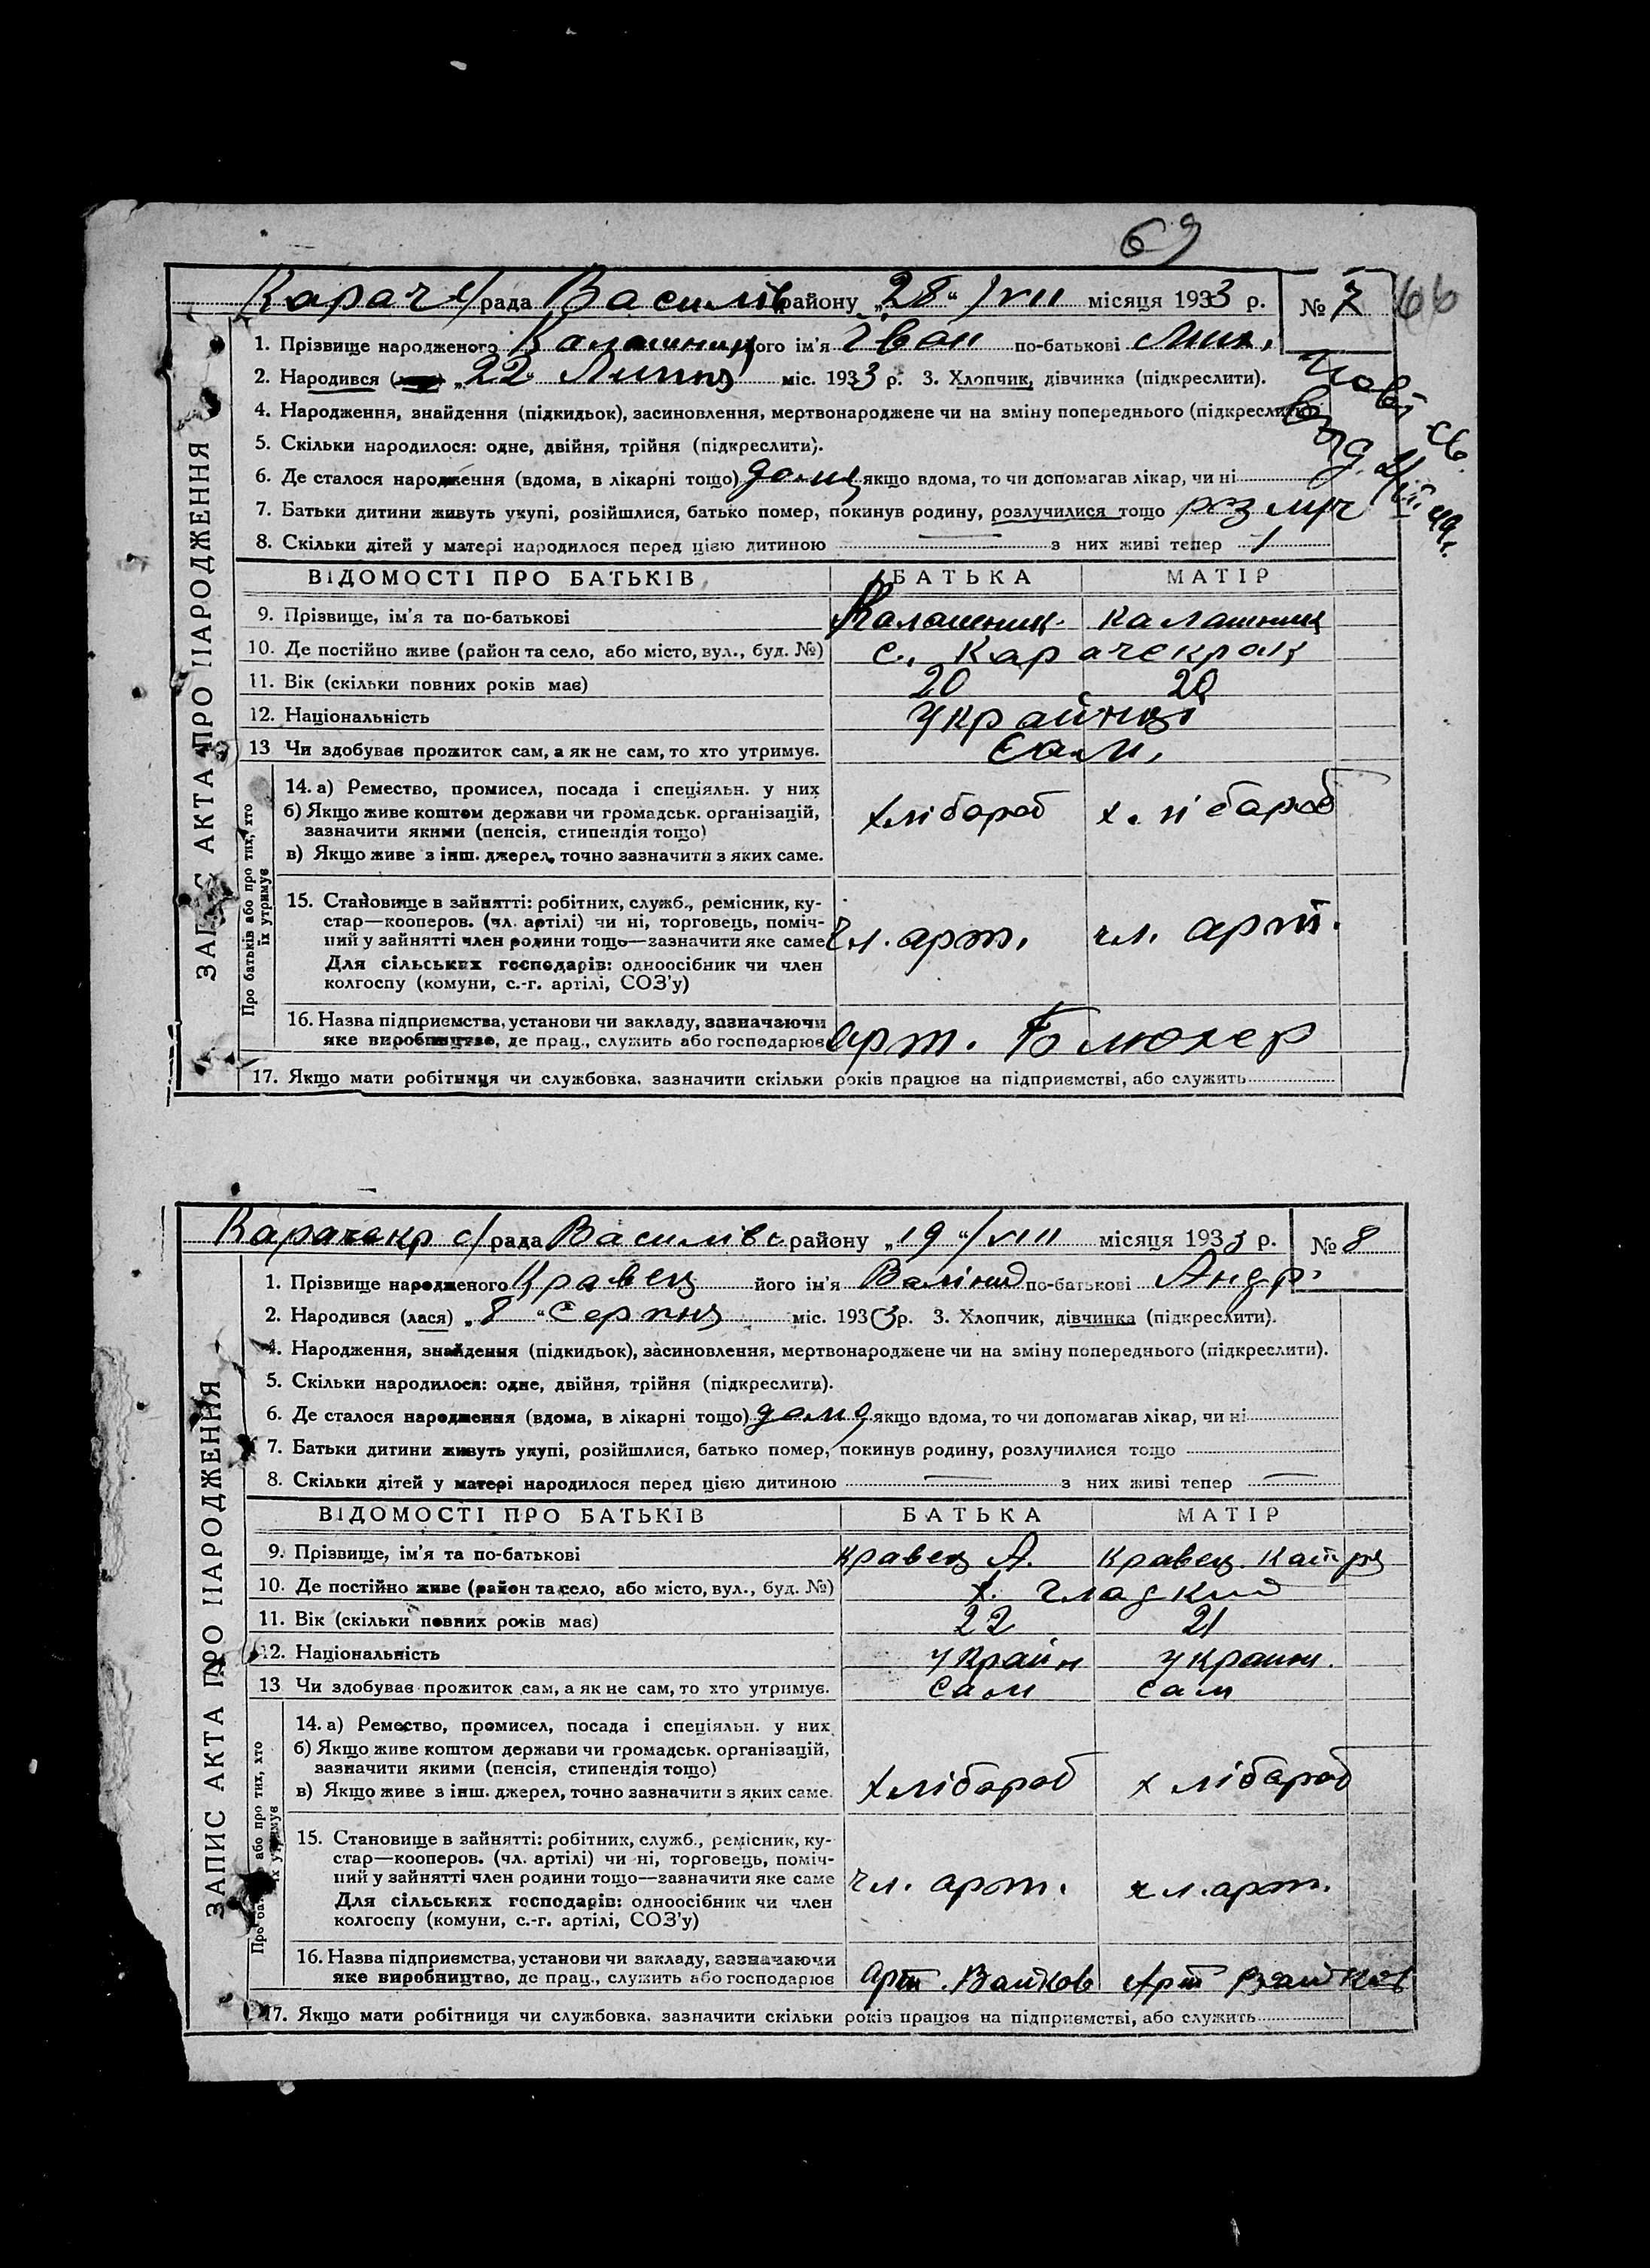 69
Карач с/рада Василів району „28“ /VII місяця 1933 р. № 7 66
1. Прізвище народженого Калашник його ім'я Іван по-батькові Мих.
2. Народився „22“ Липня міс. 1933 р. 3. Хлопчик, дівчинка (підкреслити).
4. Народження, знайдення (підкидьок), засиновлення, мертвонароджене чи на зміну попереднього (підкреслити).
5. Скільки народилося: одне, двійня, трійня (підкреслити).
6. Де сталося народження (вдома, в лікарні тощо) дома якщо вдома, то чи допомагав лікар, чи ні
7. Батьки дитини живуть укупі, розійшлися, батько помер, покинув родину, розлучилися тощо
8. Скільки дітей у матері народилося перед цією дитиною — з них живі тепер 1
ЗАПИС АКТА ПРО НАРОДЖЕННЯ
ВІДОМОСТІ ПРО БАТЬКІВ БАТЬКА МАТІР
9. Прізвище, ім'я та по-батькові Калашник Калашник
10. Де постійно живе (район та село, або місто, вул., буд. №) с. Карачекрак
11. Вік (скільки повних років має) 20 20
12. Національність українці
13 Чи здобуває прожиток сам, а як не сам, то хто утримує. сам,
Про батьків або про тих, хто їх утримує
14. а) Ремество, промисел, посада і спеціяльн. у них
б) Якщо живе коштом держави чи громадськ. організацій,
зазначити якими (пенсія, стипендія тощо) хлібороб хлібороб
в) Якщо живе з інш. джерел, точно зазначити з яких саме.
15. Становище в зайнятті: робітник, служб., ремісник, ку-
стар—кооперов. (чл. артілі) чи ні, торговець, поміч-
ний у зайнятті член родини тощо—зазначити яке саме чл. арт. чл. арт.
Для сільських господарів: одноосібник чи член
колгоспу (комуни, с.-г. артілі, СОЗ'у)
16. Назва підприємства, установи чи закладу, зазначаючи
яке виробництво, де прац., служить або господарює арт. Блюхер
17. Якщо мати робітниця чи службовка, зазначити скільки років працює на підприємстві, або служить
Карачекр с/рада Василівс району „19“ /VIII місяця 1933 р. № 8
1. Прізвище народженого Кравец його ім'я по-батькові Андр.
2. Народився (лася) „8“ Серпня міс. 1933 р. 3. Хлопчик, дівчинка (підкреслити).
4. Народження, знайдення (підкидьок), засиновлення, мертвонароджене чи на зміну попереднього (підкреслити).
5. Скільки народилося: одне, двійня, трійня (підкреслити).
6. Де сталося народження (вдома, в лікарні тощо) дома якщо вдома, то чи допомагав лікар, чи ні
7. Батьки дитини живуть укупі, розійшлися, батько помер, покинув родину, розлучилися тощо
8. Скільки дітей у матері народилося перед цією дитиною — з них живі тепер —
ЗАПИС АКТА ПРО НАРОДЖЕННЯ
ВІДОМОСТІ ПРО БАТЬКІВ БАТЬКА МАТІР
9. Прізвище, ім'я та по-батькові Кравец А. Кравец
10. Де постійно живе (район та село, або місто, вул., буд. №) х. Гладкий
11. Вік (скільки повних років має) 22 21
12. Національність україн українн.
13 Чи здобуває прожиток сам, а як не сам, то хто утримує. сам сам
Про батьків або про тих, хто їх утримує
14. а) Ремество, промисел, посада і спеціяльн. у них
б) Якщо живе коштом держави чи громадськ. організацій,
зазначити якими (пенсія, стипендія тощо)
в) Якщо живе з інш. джерел, точно зазначити з яких саме. хлібороб хлібороб
15. Становище в зайнятті: робітник, служб., ремісник, ку-
стар—кооперов. (чл. артілі) чи ні, торговець, поміч-
ний у зайнятті член родини тощо—зазначити яке саме чл. арт. чл. арт.
Для сільських господарів: одноосібник чи член
колгоспу (комуни, с.-г. артілі, СОЗ'у)
16. Назва підприємства, установи чи закладу, зазначаючи
яке виробництво, де прац., служить або господарює Арт Арт
17. Якщо мати робітниця чи службовка, зазначити скільки років працює на підприємстві, або служить